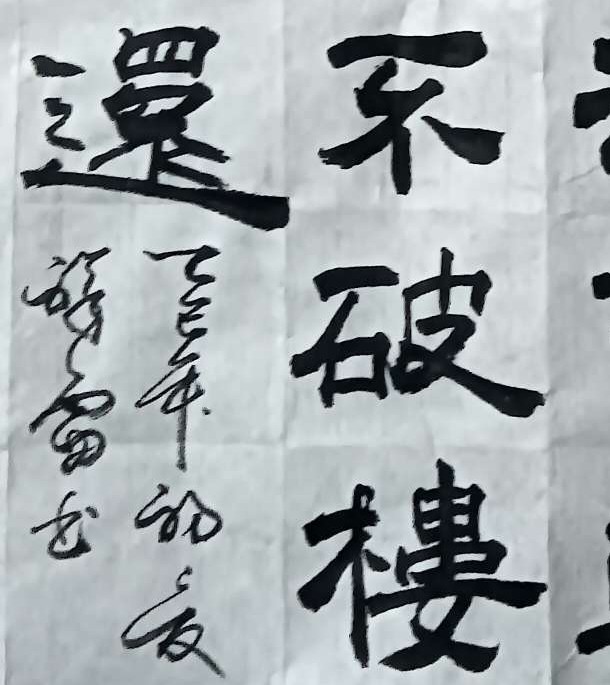 不破樓
還
乙巳年初夏
雷书